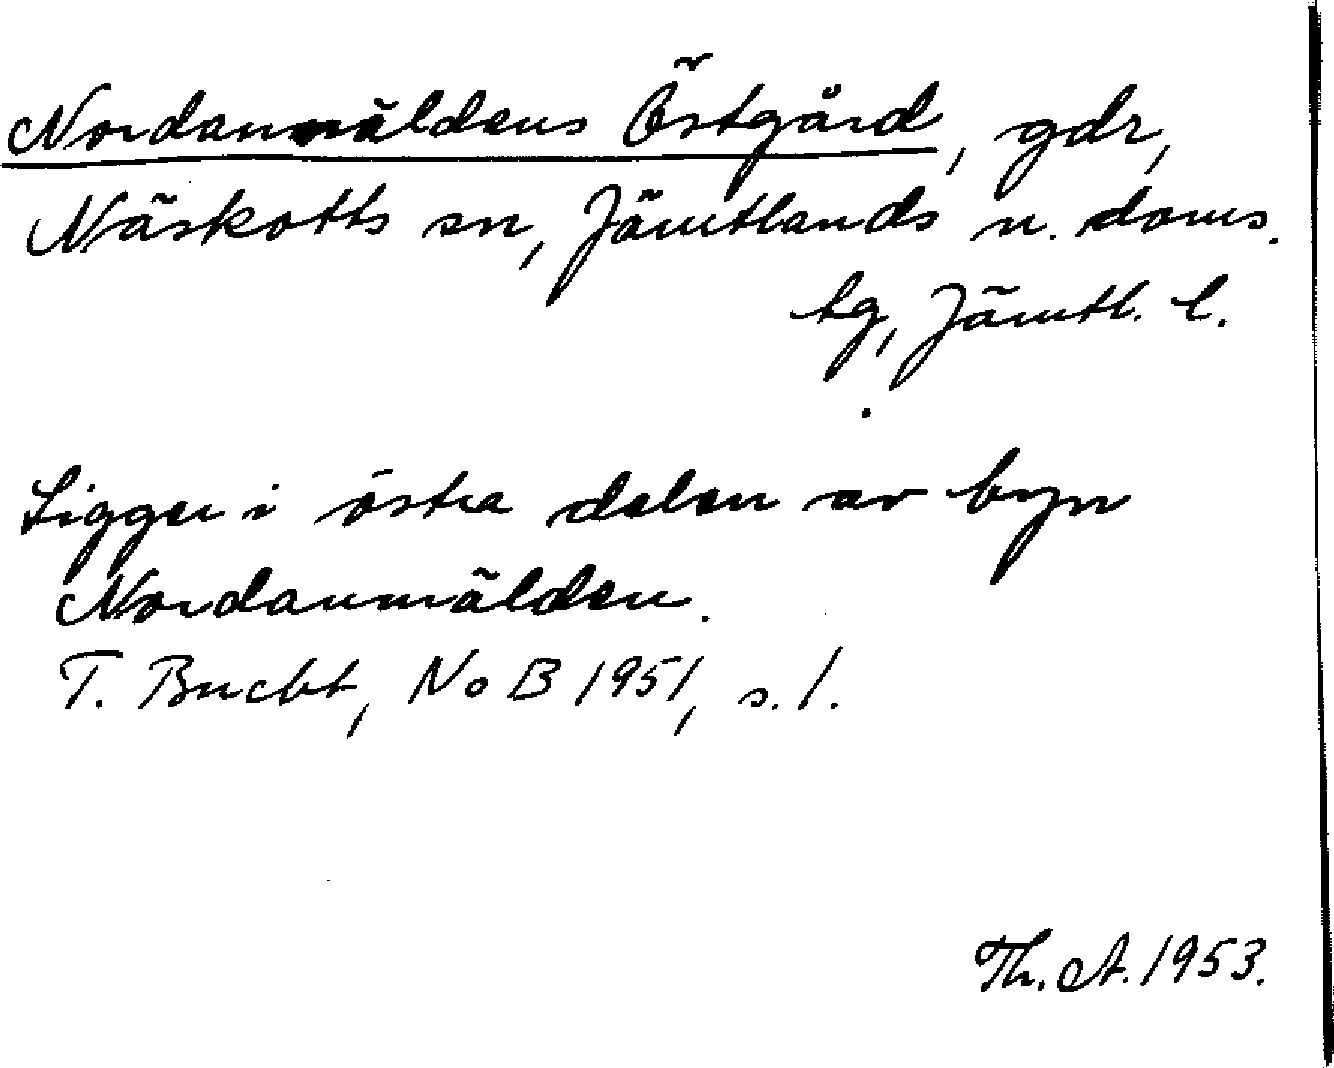 Nordanmäldens Östgård, gdr,
Näskotts sn, Jämtlands n. doms.
tg, Jämtl. l.
Ligger i östra delen av byn
Nordanmälden.
T. Bucht, NoB 1951, s. 1.
Th. A. 1953.